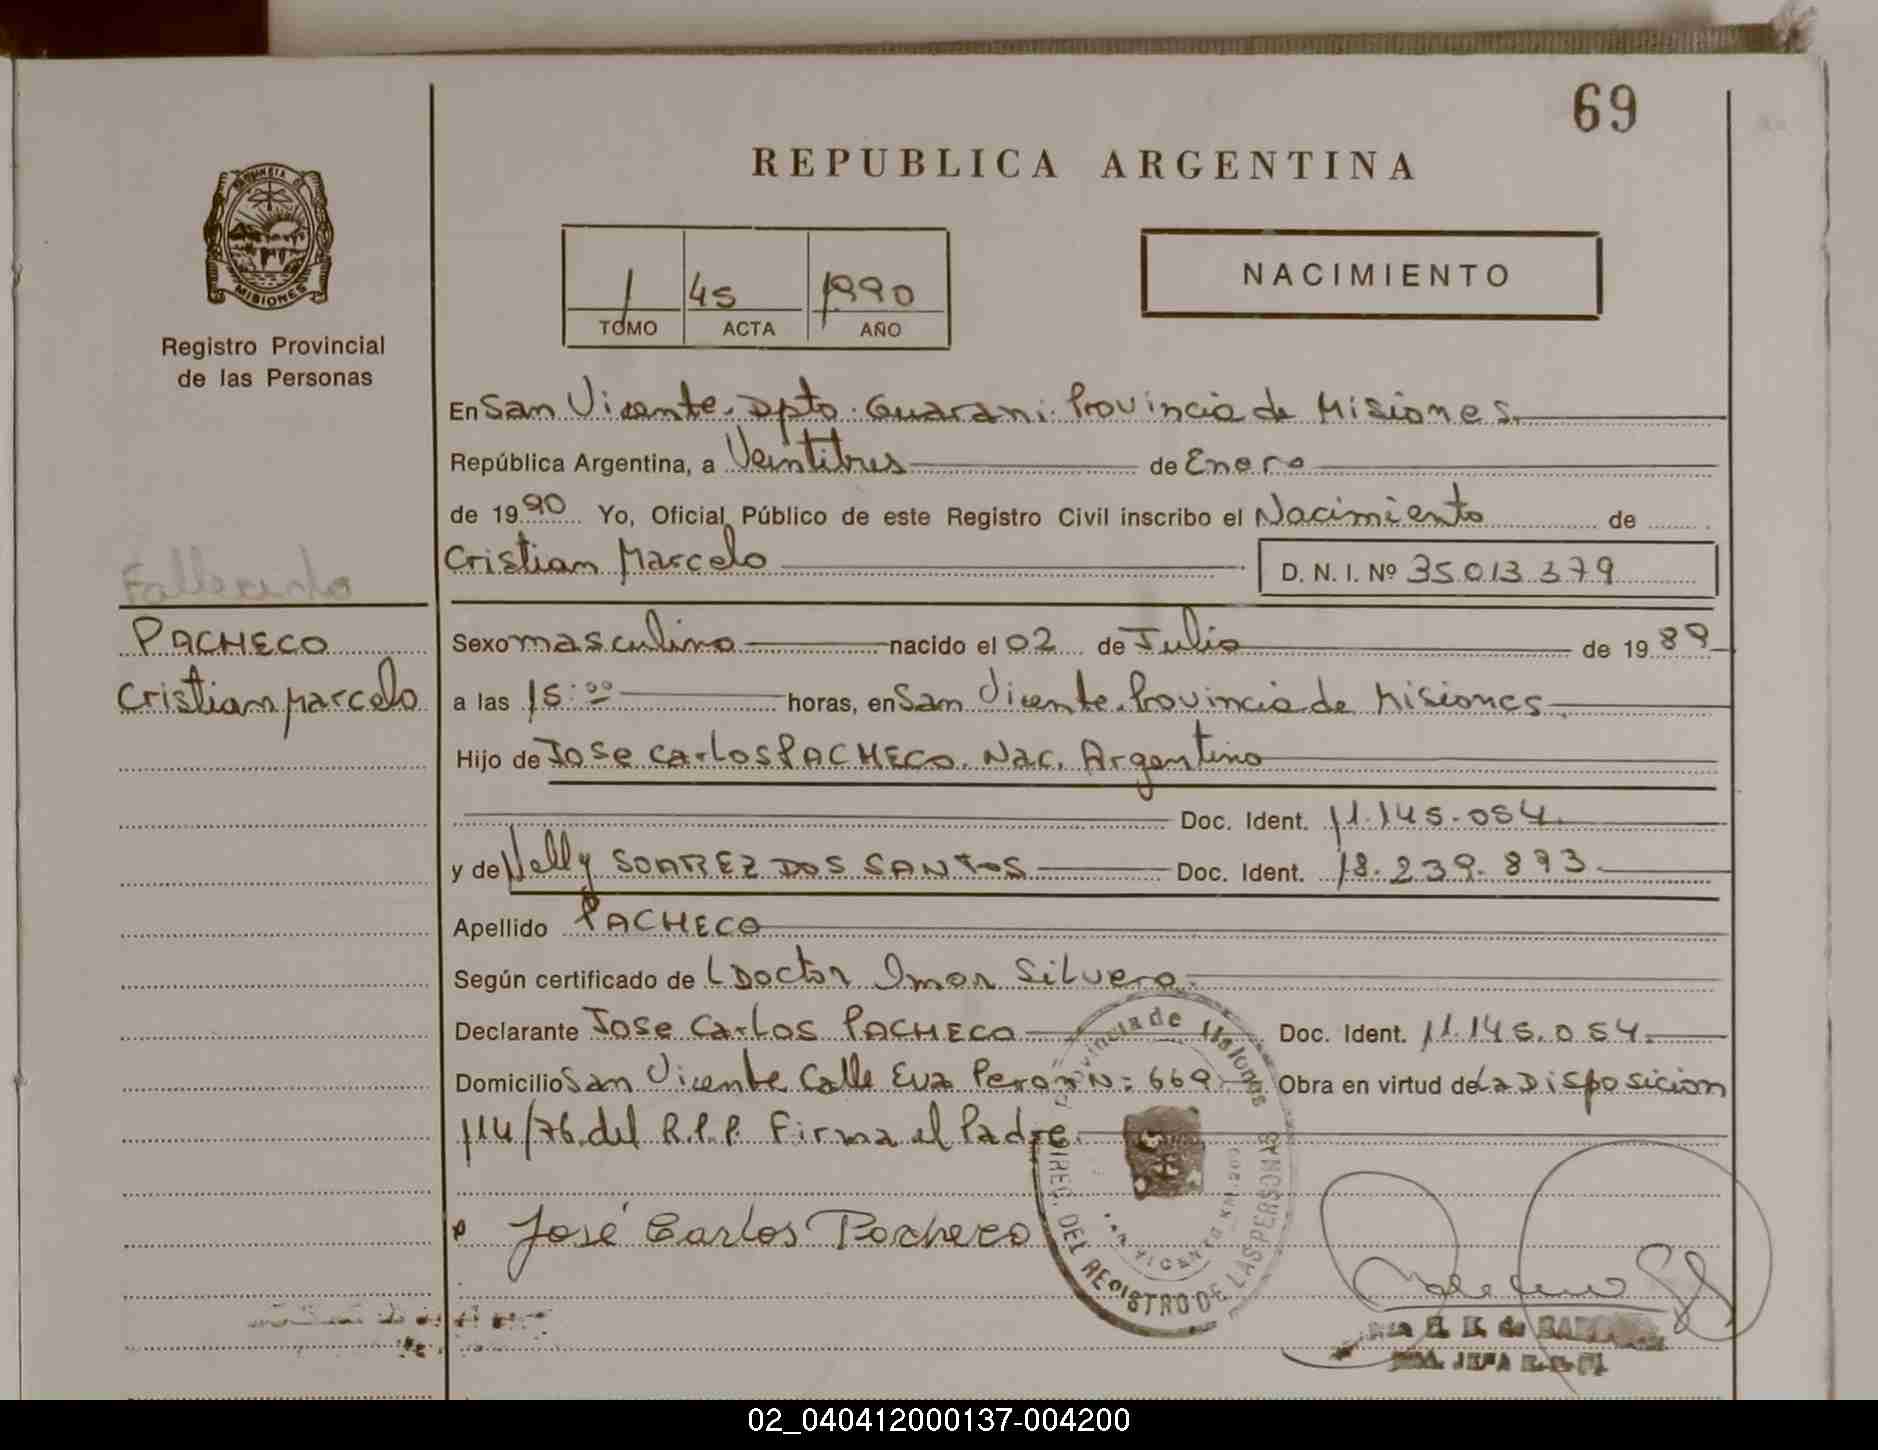 69
REPUBLICA ARGENTINA
MISIONES
Registro Provincial
de las Personas
1 45 1990
TOMO ACTA AÑO
NACIMIENTO
En San Vicente. Dpto. Guarani. Provincia de Misiones.
República Argentina, a Veintitres de Enero
de 1990 Yo, Oficial Público de este Registro Civil inscribo el Nacimiento de
Cristian Marcelo D. N. I. Nº 35013379
Fallecido
PACHECO
Cristian Marcelo
Sexo masculino nacido el 02 de Julio de 1989
a las 15:00 horas, en San Vicente. Provincia de Misiones
Hijo de Jose Carlos PACHECO. Nac. Argentino
Doc. Ident. 11.145.054.
y de Nelly SOAREZ DOS SANTOS Doc. Ident. 18.239.893
Apellido PACHECO
Según certificado de Doctor Silvero
Declarante Jose Carlos PACHECO Doc. Ident. 11.145.054.
Domicilio San Vicente Calle Eva Peron N: 669 Obra en virtud de La Disposicion
114/76 del R.P.P. Firma el Padre.
José Carlos Pacheco
Provincia de Misiones
DIREC. DEL REGISTRO DE LAS PERSONAS
SAN VICENTE
02_040412000137-004200